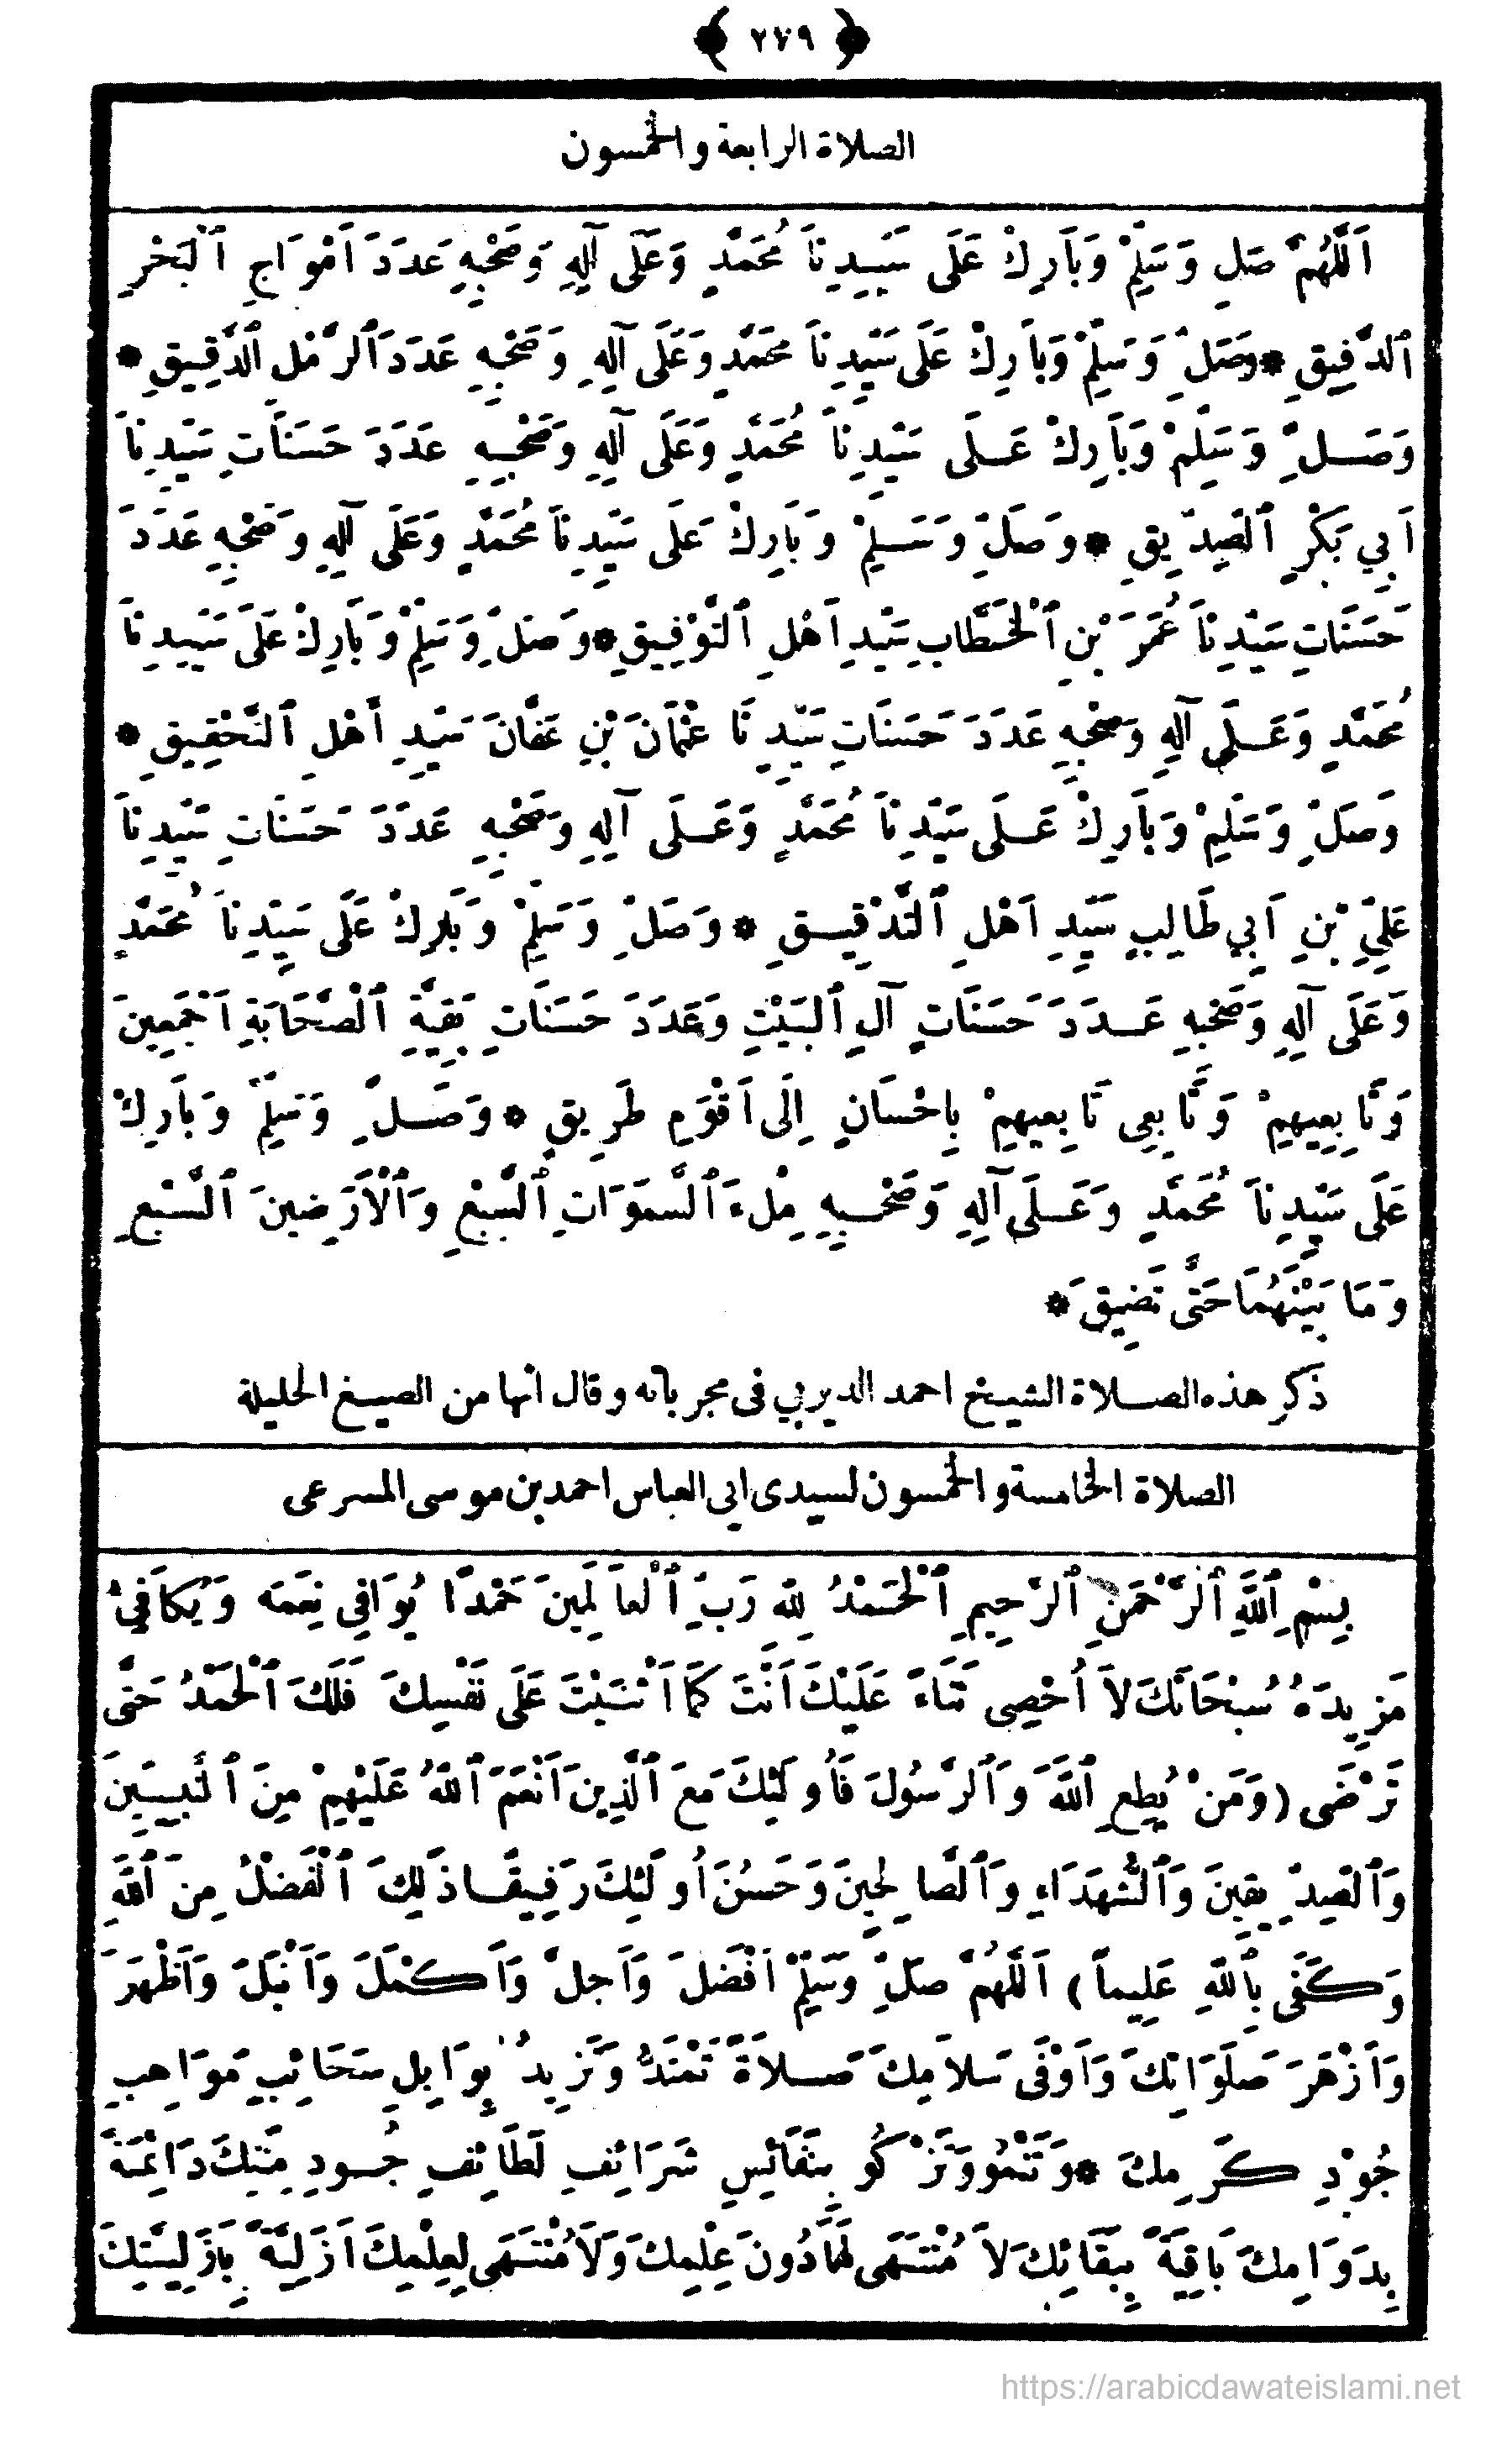 ﴿ ٢٧٩ ﴾
الصلاة الرابعة والخمسون
اَللّٰهُمَّ صَلِّ وَسَلِّمْ وَبَارِكْ عَلَى سَيِّدِنَا مُحَمَّدٍ وَعَلَى آلِهِ وَصَحْبِهِ عَدَدَ اَمْوَاجِ ٱلْبَحْرِ
ٱلدَّفِيقِ * وَصَلِّ وَسَلِّمْ وَبَارِكْ عَلَى سَيِّدِنَا مُحَمَّدٍ وَعَلَى آلِهِ وَصَحْبِهِ عَدَدَ ٱلرَّمْلِ ٱلدَّقِيقِ *
وَصَلِّ وَسَلِّمْ وَبَارِكْ عَلَى سَيِّدِنَا مُحَمَّدٍ وَعَلَى آلِهِ وَصَحْبِهِ عَدَدَ حَسَنَاتِ سَيِّدِنَا
اَبِي بَكْرٍ ٱلصِّدِّيقِ * وَصَلِّ وَسَلِّمْ وَبَارِكْ عَلَى سَيِّدِنَا مُحَمَّدٍ وَعَلَى آلِهِ وَصَحْبِهِ عَدَدَ
حَسَنَاتِ سَيِّدِنَا عُمَرَ بْنِ ٱلْخَطَّابِ سَيِّدِ اَهْلِ ٱلتَّوْفِيقِ * وَصَلِّ وَسَلِّمْ وَبَارِكْ عَلَى سَيِّدِنَا
مُحَمَّدٍ وَعَلَى آلِهِ وَصَحْبِهِ عَدَدَ حَسَنَاتِ سَيِّدِنَا عُثْمَانَ بْنِ عَفَّانَ سَيِّدِ أَهْلِ ٱلتَّحْقِيقِ *
وَصَلِّ وَسَلِّمْ وَبَارِكْ عَلَى سَيِّدِنَا مُحَمَّدٍ وَعَلَى آلِهِ وَصَحْبِهِ عَدَدَ حَسَنَاتِ سَيِّدِنَا
عَلِيِّ بْنِ اَبِي طَالِبٍ سَيِّدِ اَهْلِ ٱلتَّدْقِيقِ * وَصَلِّ وَسَلِّمْ وَبَارِكْ عَلَى سَيِّدِنَا مُحَمَّدٍ
وَعَلَى آلِهِ وَصَحْبِهِ عَدَدَ حَسَنَاتِ آلِ ٱلبَيْتِ وَعَدَدَ حَسَنَاتِ بَقِيَّةِ ٱلْصَّحَابَةِ اَجْمَعِينَ
وَتَابِعِيهِمْ وَتَابِعِى تَابِعِيهِمْ بِاِحْسَانٍ اِلَى اَقْوَمِ طَرِيقٍ * وَصَلِّ وَسَلِّمْ وَبَارِكْ
عَلَى سَيِّدِنَا مُحَمَّدٍ وَعَلَى آلِهِ وَصَحْبِهِ مِلْءَ ٱلسَّمَوَاتِ ٱلسَّبْعِ وَٱلْاَرَضِينَ ٱلسَّبْعِ
وَمَا بَيْنَهُمَا حَتَّى تَضِيقَ *
ذكر هذه الصلاة الشيخ احمد الديربي فى مجرباته وقال انها من الصيغ الجليلة
الصلاة الخامسة والخمسون لسيدى ابى العباس احمد بن موسى المسرعى
بِسْمِ ٱللَّهِ ٱلرَّحْمَنِ ٱلرَّحِيمِ ٱلْحَمْدُ لِلّهِ رَبِّ ٱلْعَالَمِينَ حَمْدًا يُوَافِى نِعَمَهُ وَيُكَافِئُ
مَزِيدَهُ سُبْحَانَكَ لَا اُحْصِى ثَنَاءً عَلَيْكَ اَنْتَ كَمَا اَثْنَيْتَ عَلَى نَفْسِكَ فَلَكَ ٱلْحَمْدُ حَتَّى
تَرْضَى (وَمَنْ يُطِعِ ٱللَّهَ وَٱلرَّسُولَ فَأُولَئِكَ مَعَ ٱلَّذِينَ اَنْعَمَ ٱللَّهُ عَلَيْهِمْ مِنَ ٱلنَّبِيِّينَ
وَٱلصِّدِّيقِينَ وَٱلشُّهَدَاءِ وَٱلصَّالِحِينَ وَحَسُنَ اُولَئِكَ رَفِيقًا ذَلِكَ ٱلْفَضْلُ مِنَ ٱللَّهِ
وَكَفَى بِٱللَّهِ عَلِيماً) اَللّٰهُمَّ صَلِّ وَسَلِّمْ اَفْضَلَ وَاَجَلَّ وَاَكْمَلَ وَاَنْبَلَ وَاَظْهَرَ
وَاَزْهَرَ صَلَوَاتِكَ وَاَوْفَى سَلَامِكَ صَلَاةً تَمْتَدُّ وَتَزِيدُ بِوَابِلِ سَحَائِبِ مَوَاهِبِ
جُوْدِ كَرَمِكَ * وَتَنْمُو وَتَزْكُو بِنَفَائِسِ شَرَائِفِ لَطَائِفِ جُودِ مَنِّكَ دَائِمَةً
بِدَوَامِكَ بَاقِيَةً بِبَقَائِكَ لَا مُنْتَهَى لَهَا دُونَ عِلْمِكَ وَلَا مُنْتَهَى لِعِلْمِكَ اَزَلِيَّةً بِاَزَلِيَّتِكَ
https://arabicdawateislami.net